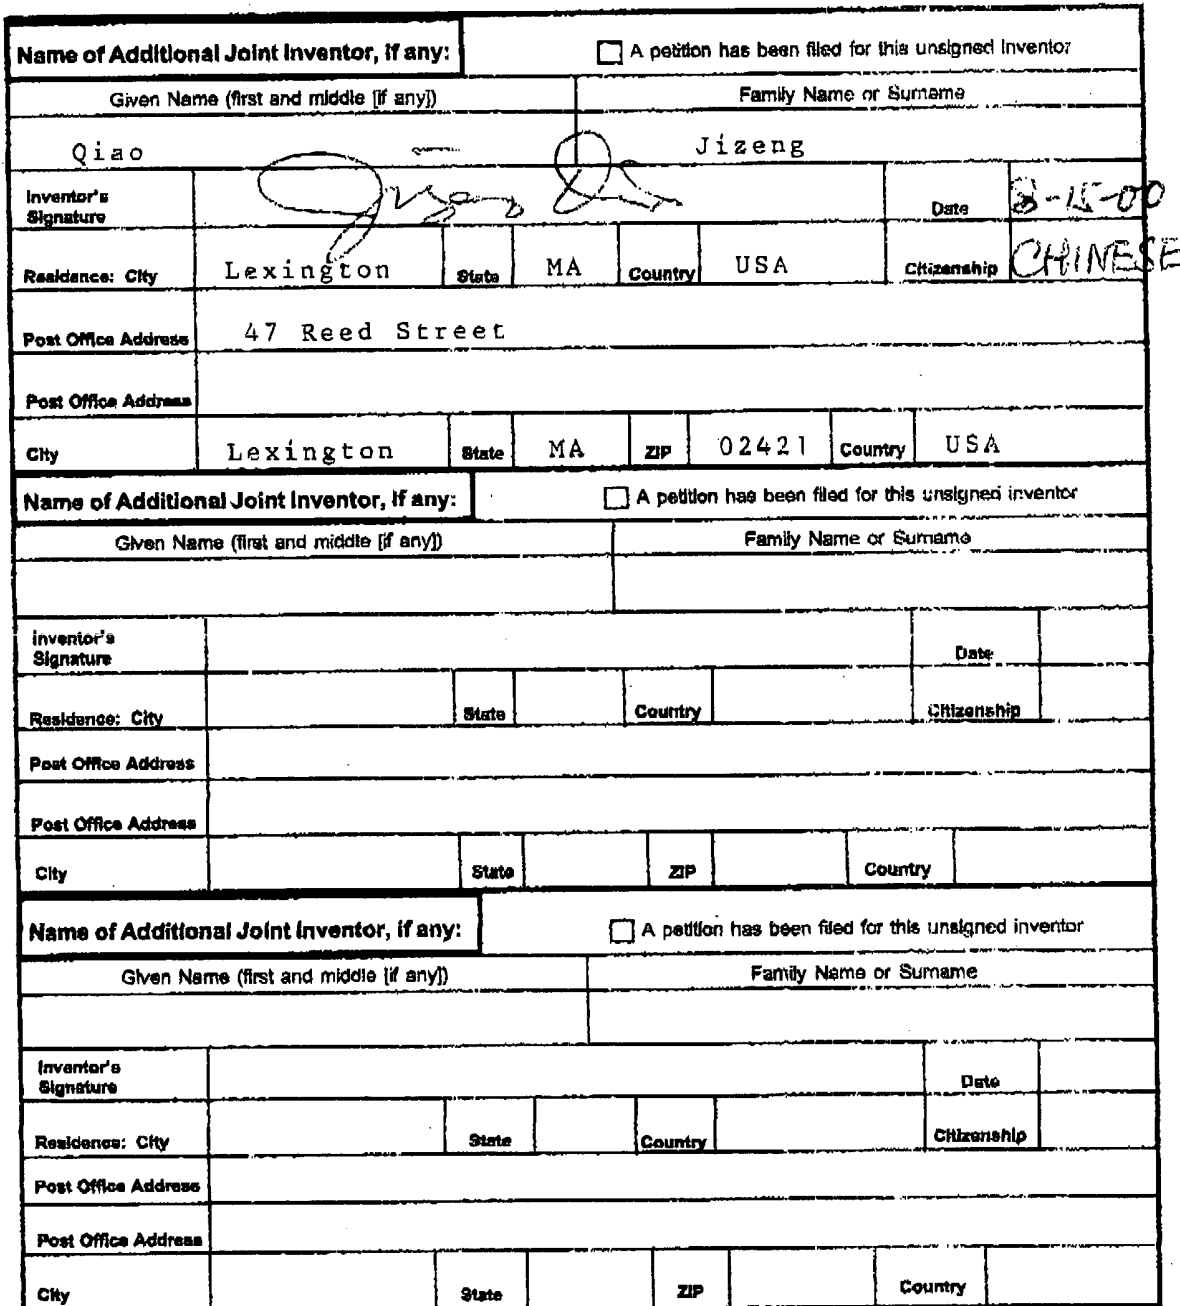 Name of Additional Joint Inventor, if any: A petition has been filed for this unsigned inventor
Given Name (first and middle [if any]) Family Name or Surname
Qiao Jizeng
Inventor's Signature Date 8-15-00
Residence: City Lexington State MA Country USA Citizenship CHINESE
Post Office Address 47 Reed Street
Post Office Address
City Lexington State MA ZIP 02421 Country USA
Name of Additional Joint Inventor, if any: A petition has been filed for this unsigned inventor
Given Name (first and middle [if any]) Family Name or Surname
Inventor's Signature Date
Residence: City State Country Citizenship
Post Office Address
Post Office Address
City State ZIP Country
Name of Additional Joint Inventor, if any: A petition has been filed for this unsigned inventor
Given Name (first and middle [if any]) Family Name or Surname
Inventor's Signature Date
Residence: City State Country Citizenship
Post Office Address
Post Office Address
City State ZIP Country